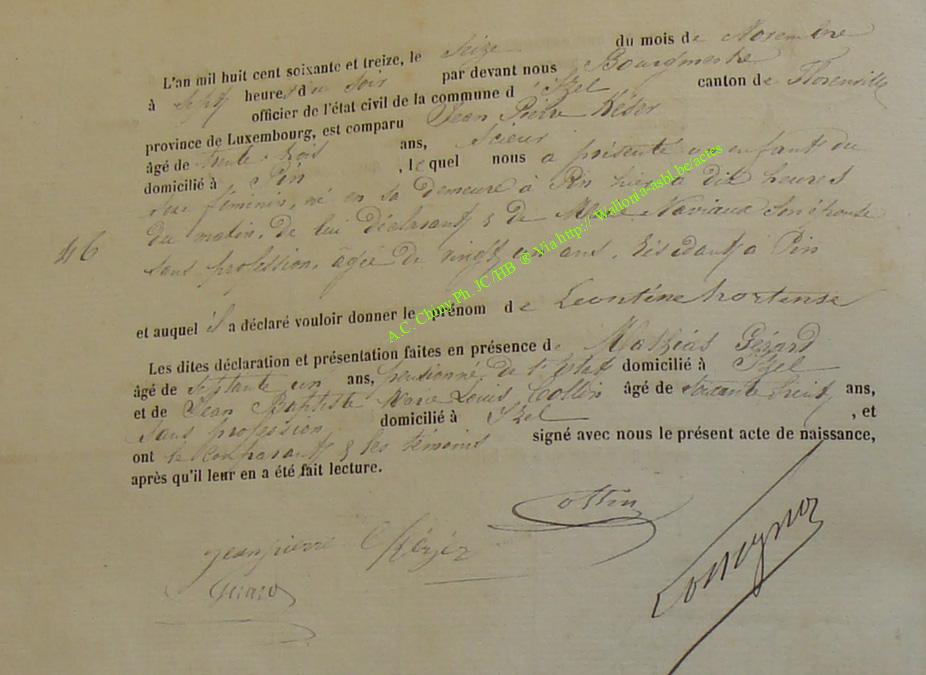 L'an mil huit cent soixante et treize, le Seize du mois de Novembre
à sept heures du soir par devant nous Bourgmestre
officier de l'état civil de la commune d'Izel canton de Florenville
province de Luxembourg, est comparu Jean Pierre
âgé de trente trois ans, Scieur
domicilié à Pin, lequel nous a présenté un enfant du
sexe féminin, né en sa demeure à Pin hier à dix heures
du matin, de lui déclarant & de Naviaux Son épouse
46
sans profession, âgée de vingt un ans, résidant à Pin
et auquel il a déclaré vouloir donner le prénom de Leontine hortense
Les dites déclaration et présentation faites en présence de Mathias Gérard
âgé de septante un ans, pensionné de l'Etat domicilié à Izel
et de Jean Baptiste Louis Collin âgé de soixante huit ans,
sans profession domicilié à Izel, et
ont le comparant & les témoins signé avec nous le présent acte de naissance,
après qu'il leur en a été fait lecture.
Collin
jeanpierre
Gerard
A.C. Chiny Ph. JC/HB @ Via http://Wallonia-asbl.be/actes